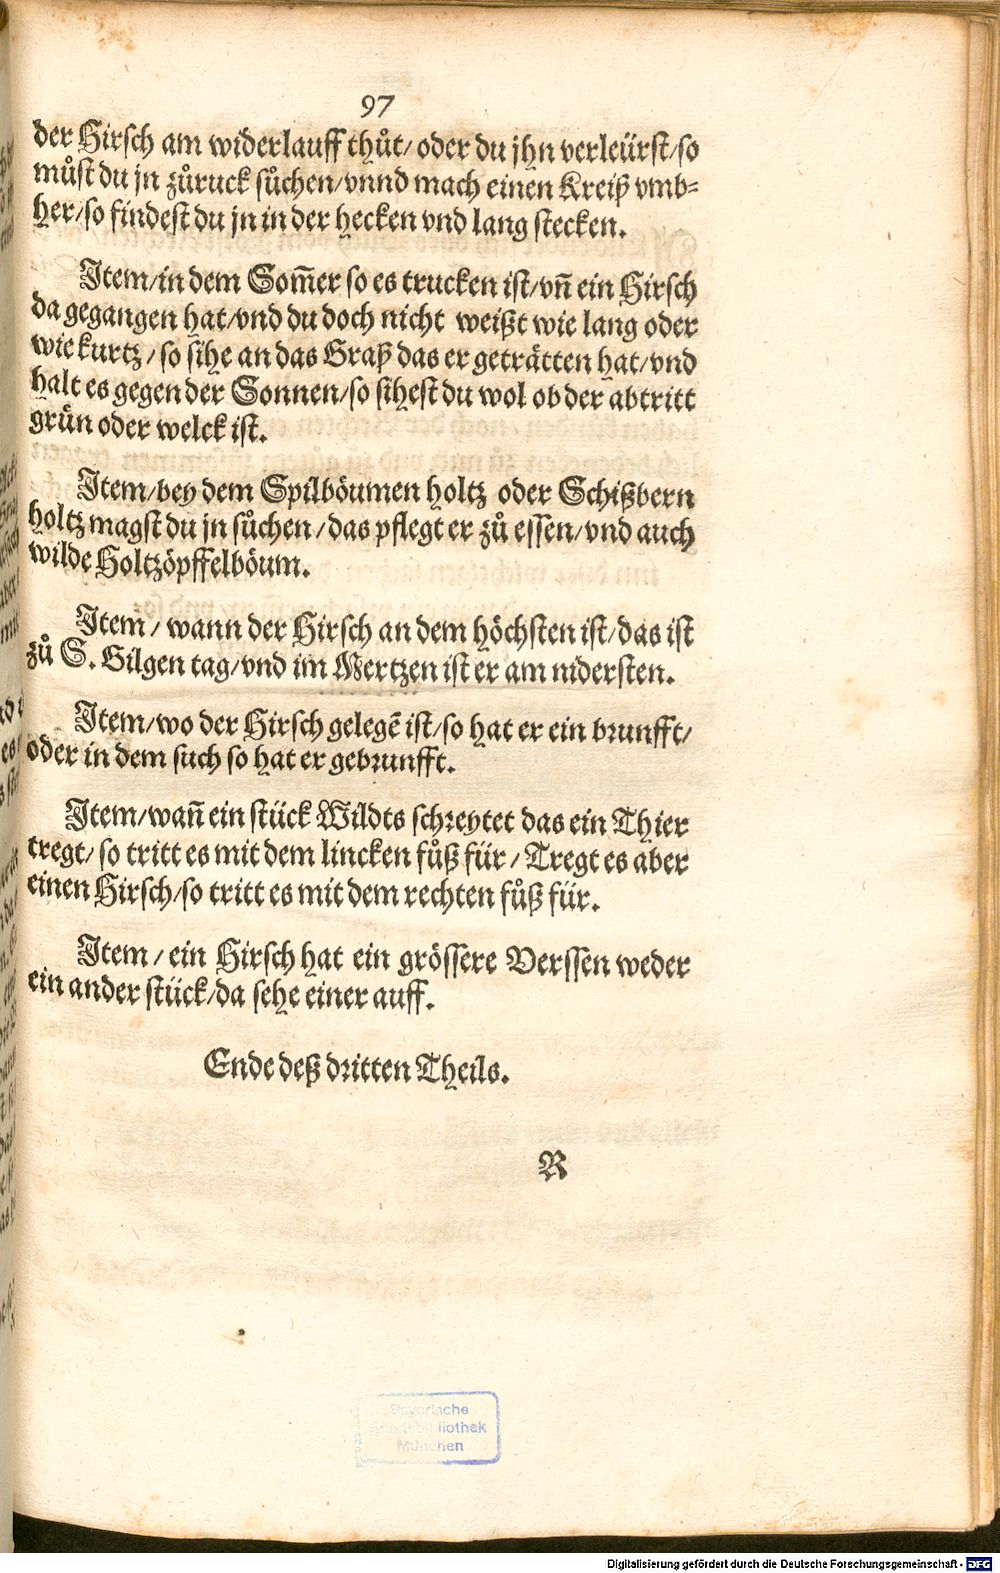 97
der Hirsch am widerlauff thůt/ oder du jhn verleürst/so
můst du jn zůruck sůchen/vnnd mach einen Kreiß vmb⸗
her/so findest du jn in der hecken vnd lang stecken.
Item/in dem Som̃er so es trucken ist/vñ ein Hirsch
da gegangen hat/vnd du doch nicht weißt wie lang oder
wie kurtz/ so sihe an das Graß das er geträtten hat/vnd
halt es gegen der Sonnen/so sihest du wol ob der abtritt
grün oder welck ist.
Item/bey dem Spilböumen holtz oder Schißbern
holtz magst du jn sůchen/das pflegt er zů essen/vnd auch
wilde Holtzöpffelböum.
Item/ wann der Hirsch an dem höchsten ist/das ist
zů S. Gilgen tag/vnd im Mertzen ist er am nidersten.
Item/wo der Hirsch gelegẽ ist/so hat er ein brunfft/
oder in dem such so hat er gebrunfft.
Item/wañ ein stück Wildts schreytet das ein Thier
tregt/ so tritt es mit dem lincken fůß für/ Tregt es aber
einen Hirsch/so tritt es mit dem rechten fůß für.
Item/ ein Hirsch hat ein grössere Verssen weder
ein ander stück/da sehe einer auff.
Ende deß dritten Theils.
R
Bayerische
Staatsbibliothek
München
Digitalisierung gefördert durch die Deutsche Forschungsgemeinschaft - DFG